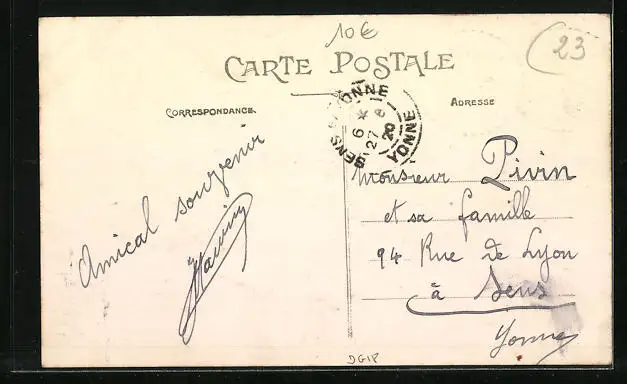 10€
23
CARTE POSTALE
CORRESPONDANCE
ADRESSE
SENS YONNE
6 *
27 8
20
YONNE
Amical souvenir
Monsieur Pivin
et sa famille
94 Rue de Lyon
à Sens
Yonne
DG18